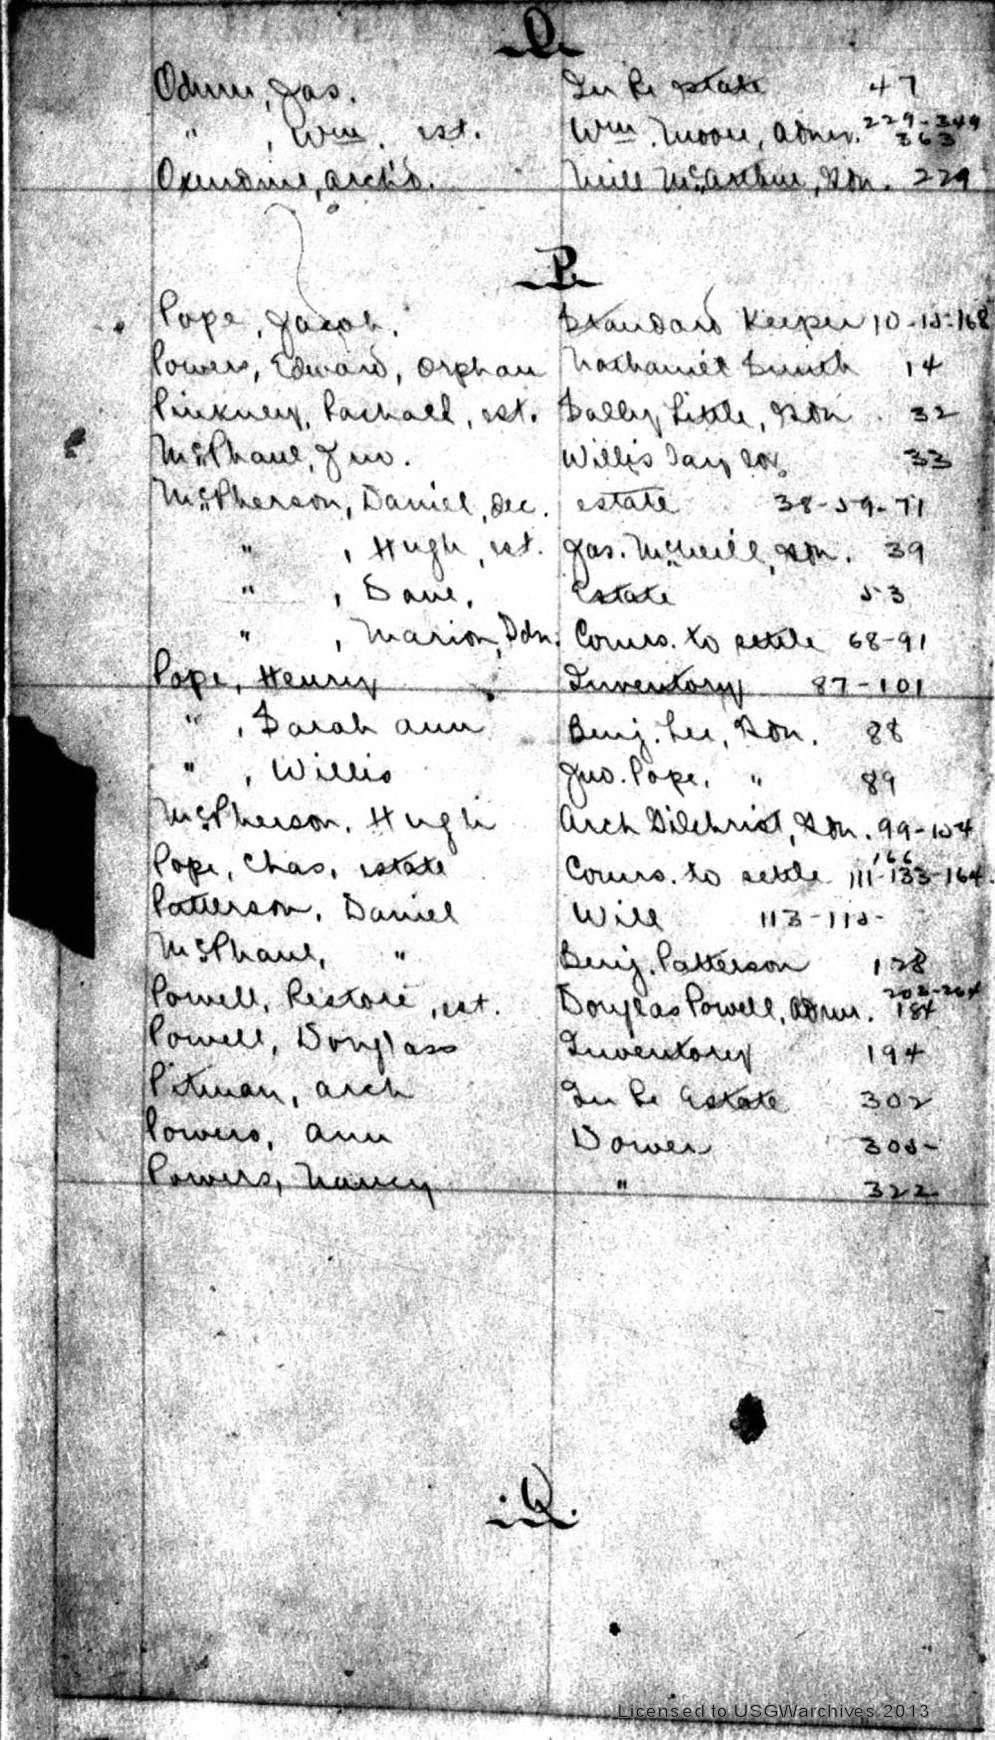 O
Odum, Jas. In Re estate 47
" , Wm. est. Wm. Moore, Admr. 229-349 363
Oxendine, Arch'd. Neill McArthur, Gdn. 229
P.
Pope, Jacob. Standard Keeper 10-15-168
Powers, Edward, Orphan Nathaniel Smith 14
Pinkney, Rachael, est. Sally Little, Gdn 32
McPhaul, Jno. Willis Taylor 33
McPherson, Daniel, dec. estate 38-59-71
" , Hugh, est. Jas. McNeill, Gdn. 39
" , Dave, Estate 53
" , Marion, Gdn. Comrs. to settle 68-91
Pope, Henry Inventory 87-101
" , Sarah Ann Benj. Lee, Gdn. 88
" , Willis Jno. Pope, " 89
McPherson, Hugh Arch Gilchrist, Gdn. 99-104
Pope, Chas. estate Comrs. to settle 111-133-164. 166
Patterson, Daniel Will 113-115-
McPhaul, " Benj. Patterson 128
Powell, Restore, est. Douglas Powell, Admr. 184
Powell, Douglass Inventory 194
Pitman, Arch In Re Estate 302
Powers, Ann Dower 305-
Powers, Nancy " 322
.Q.
Licensed to USGWarchives 2013